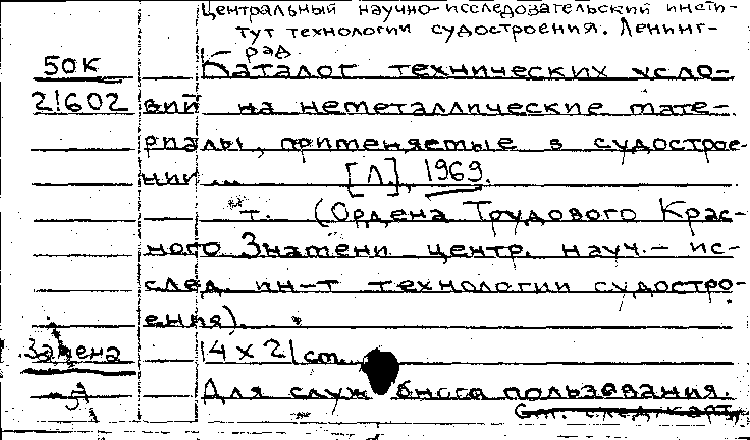 Центральный научно-исследовательский инсти-
тут технологии судостроения. Ленинг-
рад.
50К Каталог технических усло-
21602 вий на неметаллические мате-
риалы, применяемые в судострое-
нии ... [Л.], 1969.
т. (Ордена Трудового Крас-
ного Знамени центр. науч.- ис-
след. ин-т технологии судостро-
ения).
Замена 14 x 21 cm.
Для служебного пользования.
См. след. карт.